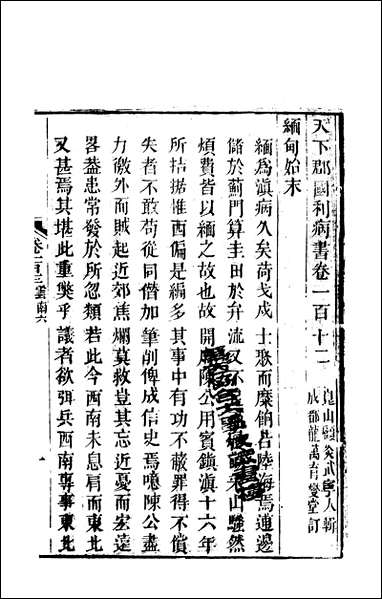 天下郡國利病書卷一百十二
崑山顧炎武寧人輯
成都龍萬育燮堂訂
緬甸始末
緬為滇病久矣荷戈戍士聚而糜餉若陸海焉連邊
儲於薊門算圭田於升流又不山騷然
煩費皆以緬之故也故開府陳公用賓鎮滇十六年
所拮据惟西偏是編多其事中有功不蔽罪得不償
失者不敢苟從同僭加筆削俾成信史焉噫陳公盡
力徼外而賊起近郊焦爛莫救豈其忘近憂而宏遠
畧葢患常發於所忽類若此今西南未息肩而東北
又甚焉其堪此重獘乎議者欲弭兵西南專事東北
卷一百三雲南六